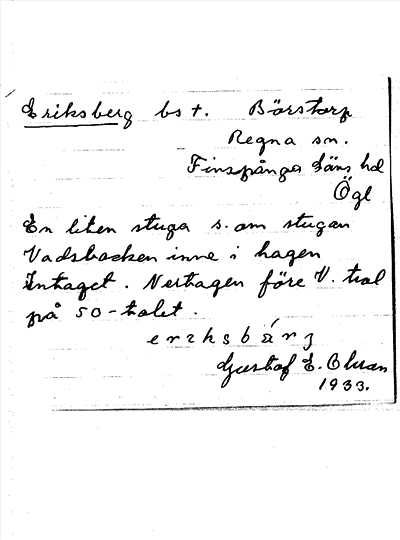 Eriksberg bs †. Börstorp
Regna sn.
Finspånga läns hd
Ögl
En liten stuga s. om stugan
Vadsbacken inne i hagen
Intaget. Nerhagen före V. tal
på 50-talet.
erɩksbárj
Gustaf E. Olsson
1933.